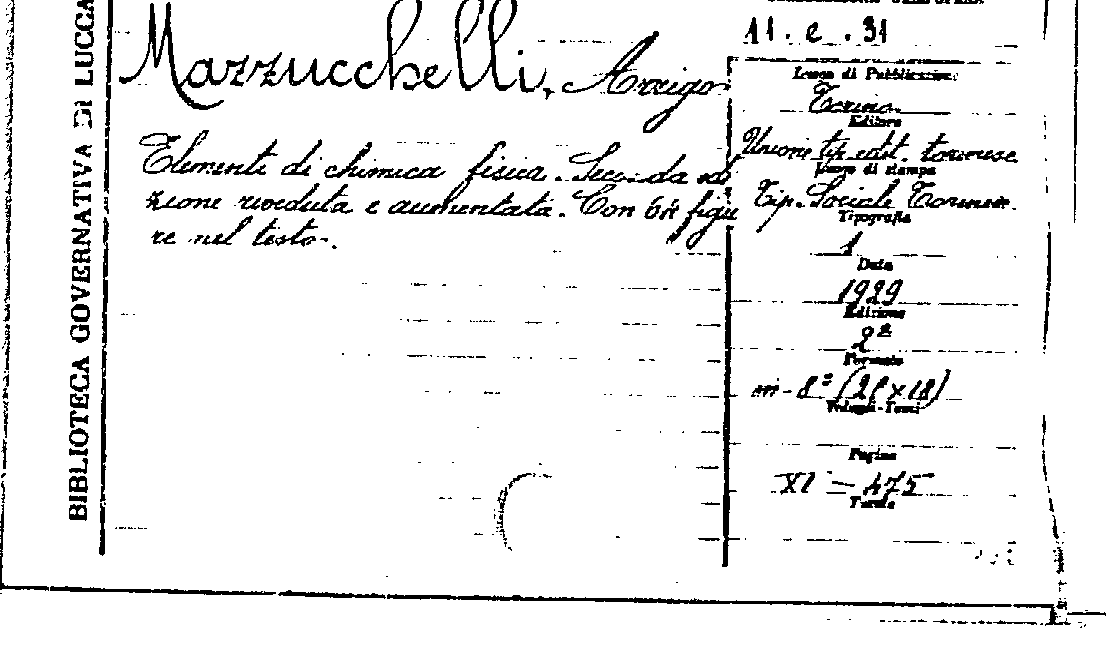 BIBLIOTECA GOVERNATIVA DI LUCCA
Mazzucchelli, Arrigo
Elementi di chimica fisica. Seconda edi
zione riveduta e aumentata. Con figu
re nel testo.
11. e. 31
Luogo di Pubblicazione
Torino
Editore
Unione tip. edit. torinese
Luogo di stampa
Tip. Sociale Torinese
Tipografia
1
Data
1929
Edizione
2ª
Formato
in-8° (28x18)
Volumi-Tomi
Pagine
XI - 475
Tavole